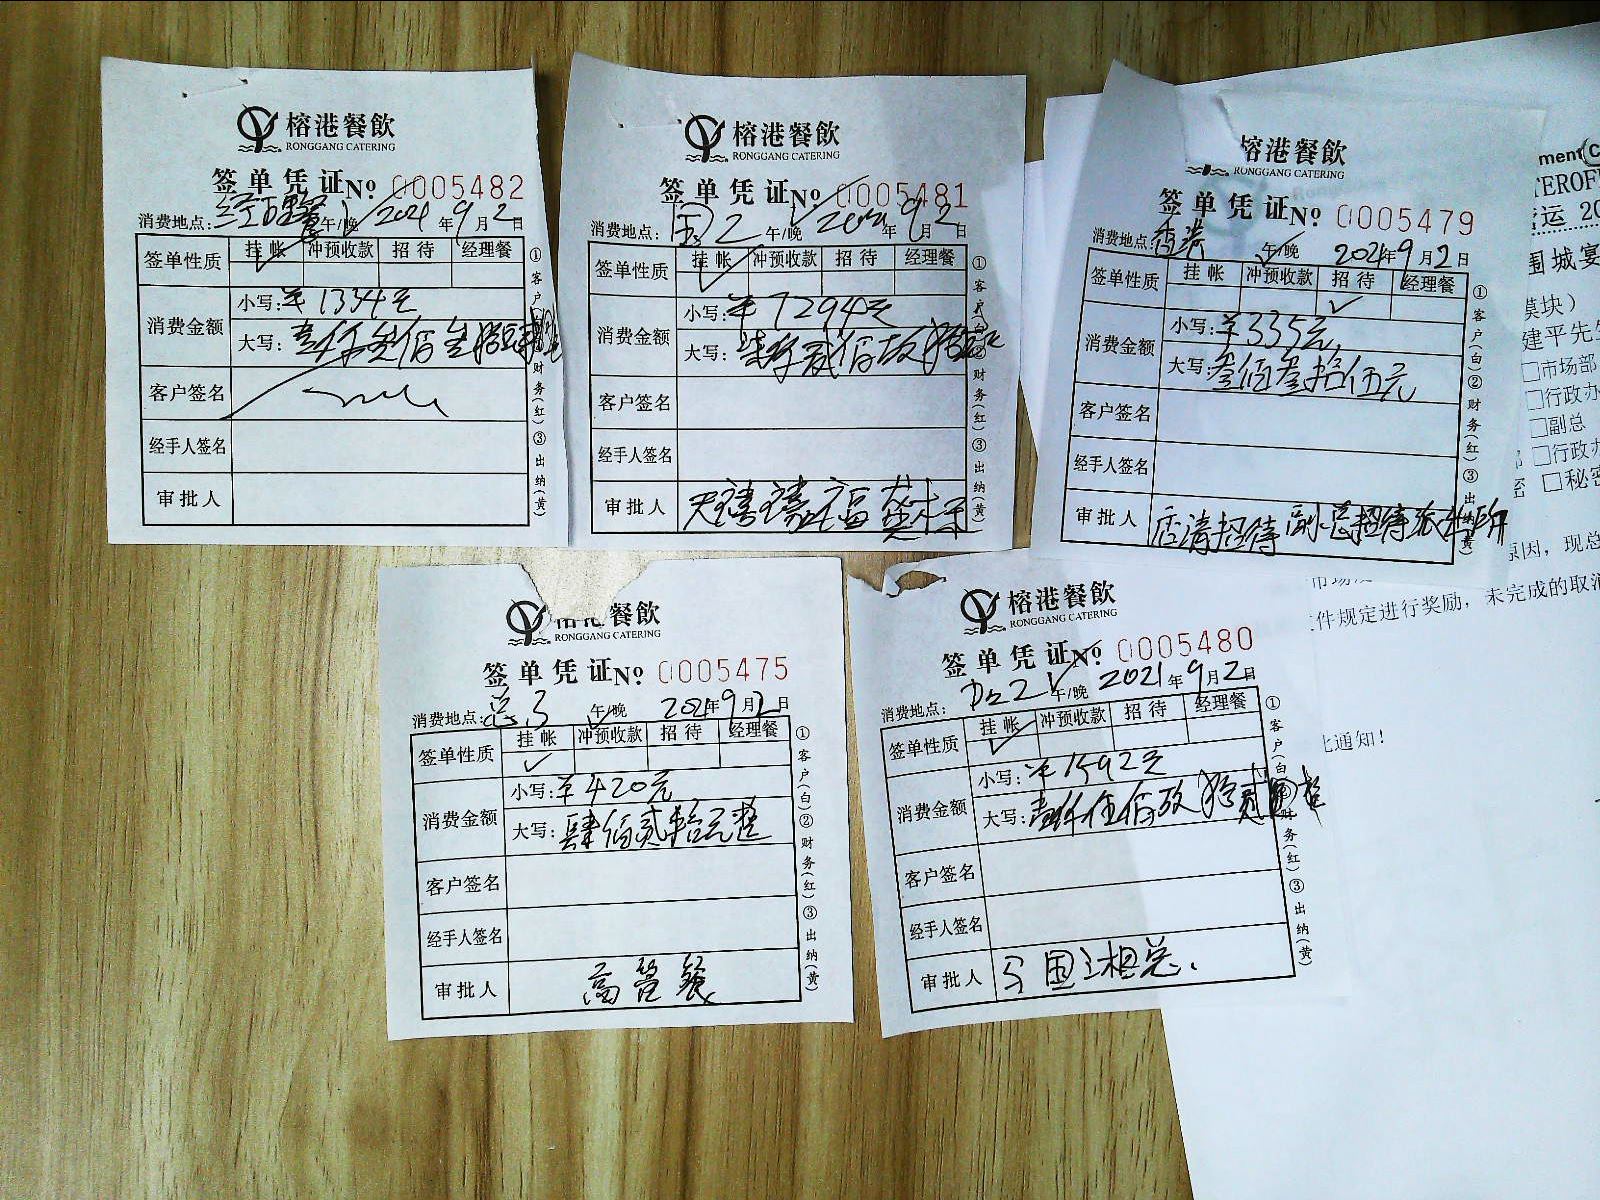 榕港餐飲
RONGGANG CATERING
签单凭证 No 0005482
消费地点: 经理餐 午/晚 2021年9月2日
签单性质 挂帐 冲预收款 招待 经理餐
✓
消费金额
小写: ¥1334元
大写: 壹仟叁佰叁拾肆元
客户签名
经手人签名
审批人
①客户(白)②财务(红)③出纳(黄)
榕港餐飲
RONGGANG CATERING
签单凭证 No 0005481
消费地点: 国2 午/晚 2021年9月2日
签单性质 挂帐 冲预收款 招待 经理餐
✓
消费金额
小写: ¥7294元
大写: 柒仟贰佰玖拾肆元
客户签名
经手人签名
审批人
①客户(白)②财务(红)③出纳(黄)
榕港餐飲
RONGGANG CATERING
签单凭证 No 0005479
消费地点: 午/晚 2021年9月2日
签单性质 挂帐 冲预收款 招待 经理餐
✓
消费金额
小写: ¥335元
大写: 叁佰叁拾伍元
客户签名
经手人签名
审批人 招待 副总招待
①客户(白)②财务(红)③出纳(黄)
榕港餐飲
RONGGANG CATERING
签单凭证 No 0005475
消费地点: 总3 午/晚 2021年9月2日
签单性质 挂帐 冲预收款 招待 经理餐
✓
消费金额
小写: ¥420元
大写: 肆佰贰拾元整
客户签名
经手人签名
审批人 高管餐
①客户(白)②财务(红)③出纳(黄)
榕港餐飲
RONGGANG CATERING
签单凭证 No 0005480
消费地点: 午/晚 2021年9月2日
签单性质 挂帐 冲预收款 招待 经理餐
✓
消费金额
小写: ¥1592元
大写: 壹仟伍佰玖拾贰圆整
客户签名
经手人签名
审批人
①客户(白)②财务(红)③出纳(黄)
ment
TEROF
营运 20
围城宴
模块)
建平先生
□市场部
□行政办
□副总
□行政办
密 □秘密
原因，现总
件规定进行奖励，未完成的取消
比通知！